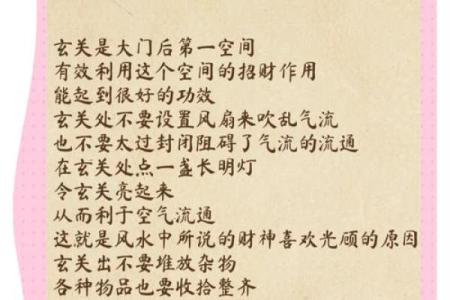 玄关是大门后第一空间
有效利用这个空间的招财作用
能起到很好的功效
玄关处不要设置风扇来吹乱气流
也不要太过封闭阻碍了气流的流通
在玄关处点一盏长明灯
令玄关亮起来
从而利于空气流通
这就是风水中所说的财神喜欢光顾的原因
玄关出不要堆放杂物
各种物品也要收拾整齐